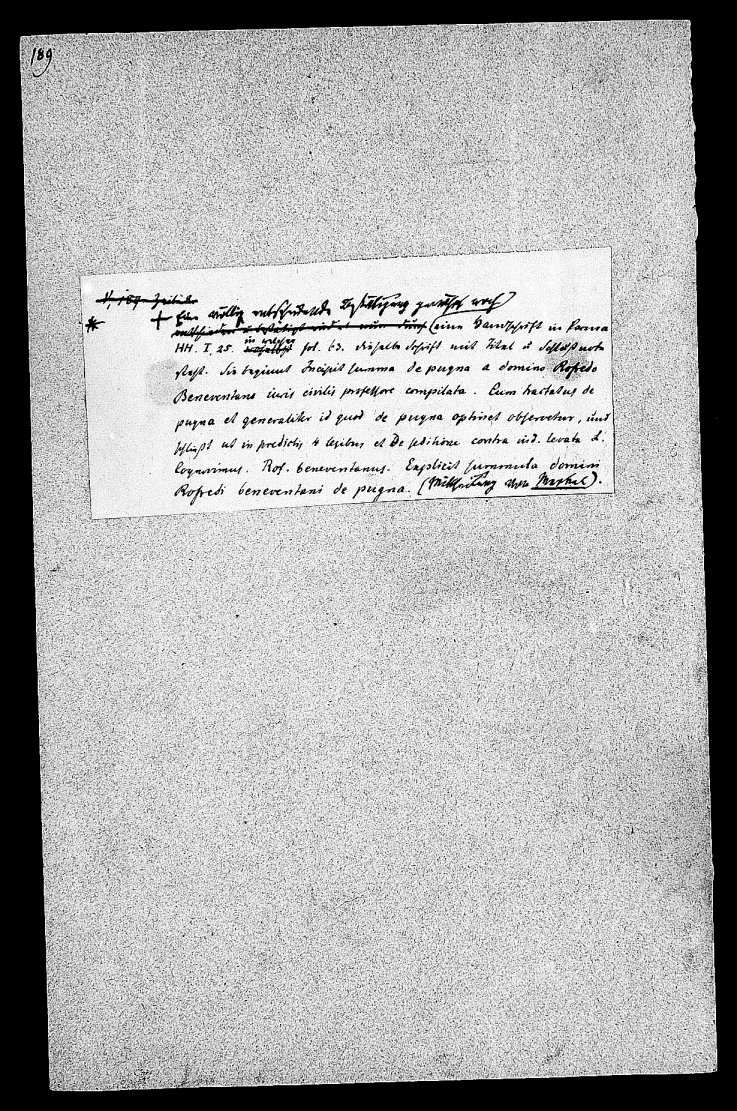 189
+ Eine völlig entscheidende Bestätigung gewährt noch
* eine Handschrift in Parma
HH. I. 25. in welcher fol. 63. dieselbe Schrift mit Titel u Schlußnote
steht. Sie beginnt Incipit summa de pugna a domino Rofredo
Beneventano iuris civilis professore compilata. Cum tractatus de
pugna et generaliter id quod de pugna optinet observetur, und
schließt ut in predictis 4 legibus et De seditione contra ind. levata L.
Cognovimus. Rof. beneventanus. Explicit summula domini
Rofredi beneventani de pugna. (Mittheilung von Merkel).